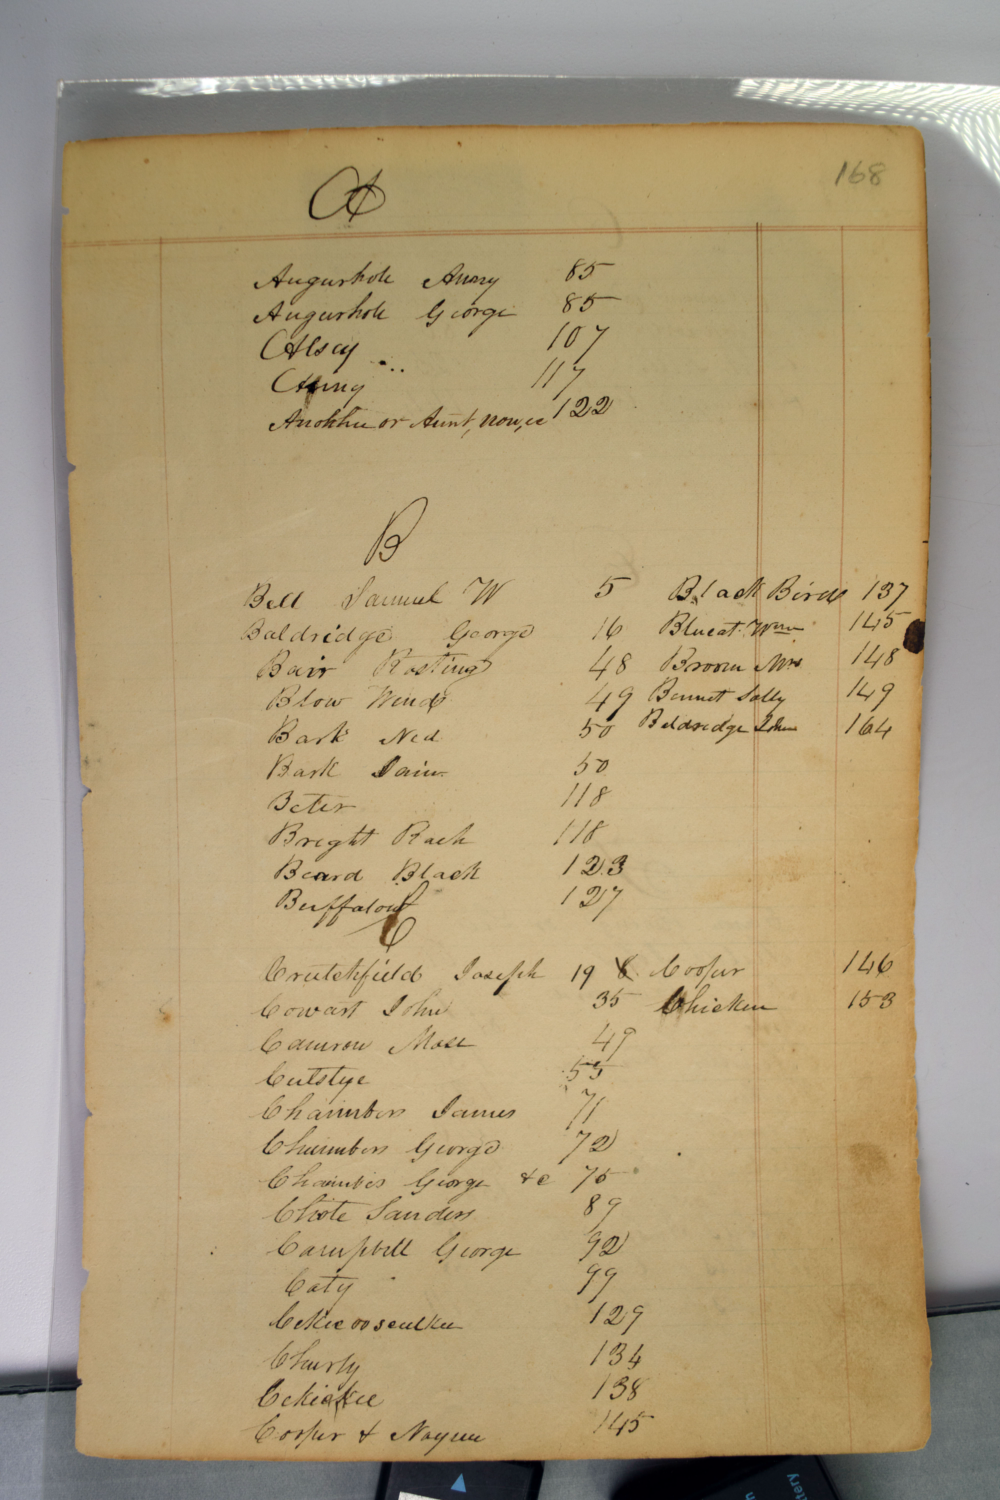 168
A
Augurhole Anny 85
Augurhole George 85
Alsey 107
117
or Aunt, now, ce 122
B
Bell Samuel W 5 Black Bird 137
Baldridge George 16 Blueat Wm 145
Bair Rosting 48 Broom Mrs 148
Blow Wind 49 Bennet Sally 149
Bark Ned 50 Beldredge John 164
Bark 50
Beter 118
Bright Rach 118
Beard Black 123
Buffalow 127
C
Crutchfield Joseph 19 8 Cooper 146
Cowart John 35 Chicken 153
Camron Mose 49
Cutstye 55
Chaimbers James 71
Chumbers George 72
Chaimbers George &c 75
Chote Sanders 89
Campbell George 92
Caty 99
129
Churly 134
138
Cooper & 145